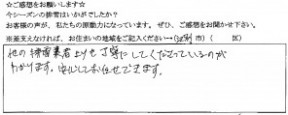 ☆ご感想をお願いします☆
今シーズンの排雪はいかがでしたか?
お客様の声が、私たちの原動力になっています。ぜひ、ご感想をお聞かせ下さい。
※差支えなければ、お住まいの地域をご記入ください→(江別 市)( 区)
他の排雪業者よりも丁寧にしてくださっているのが
わかります。安心してお任せできます。